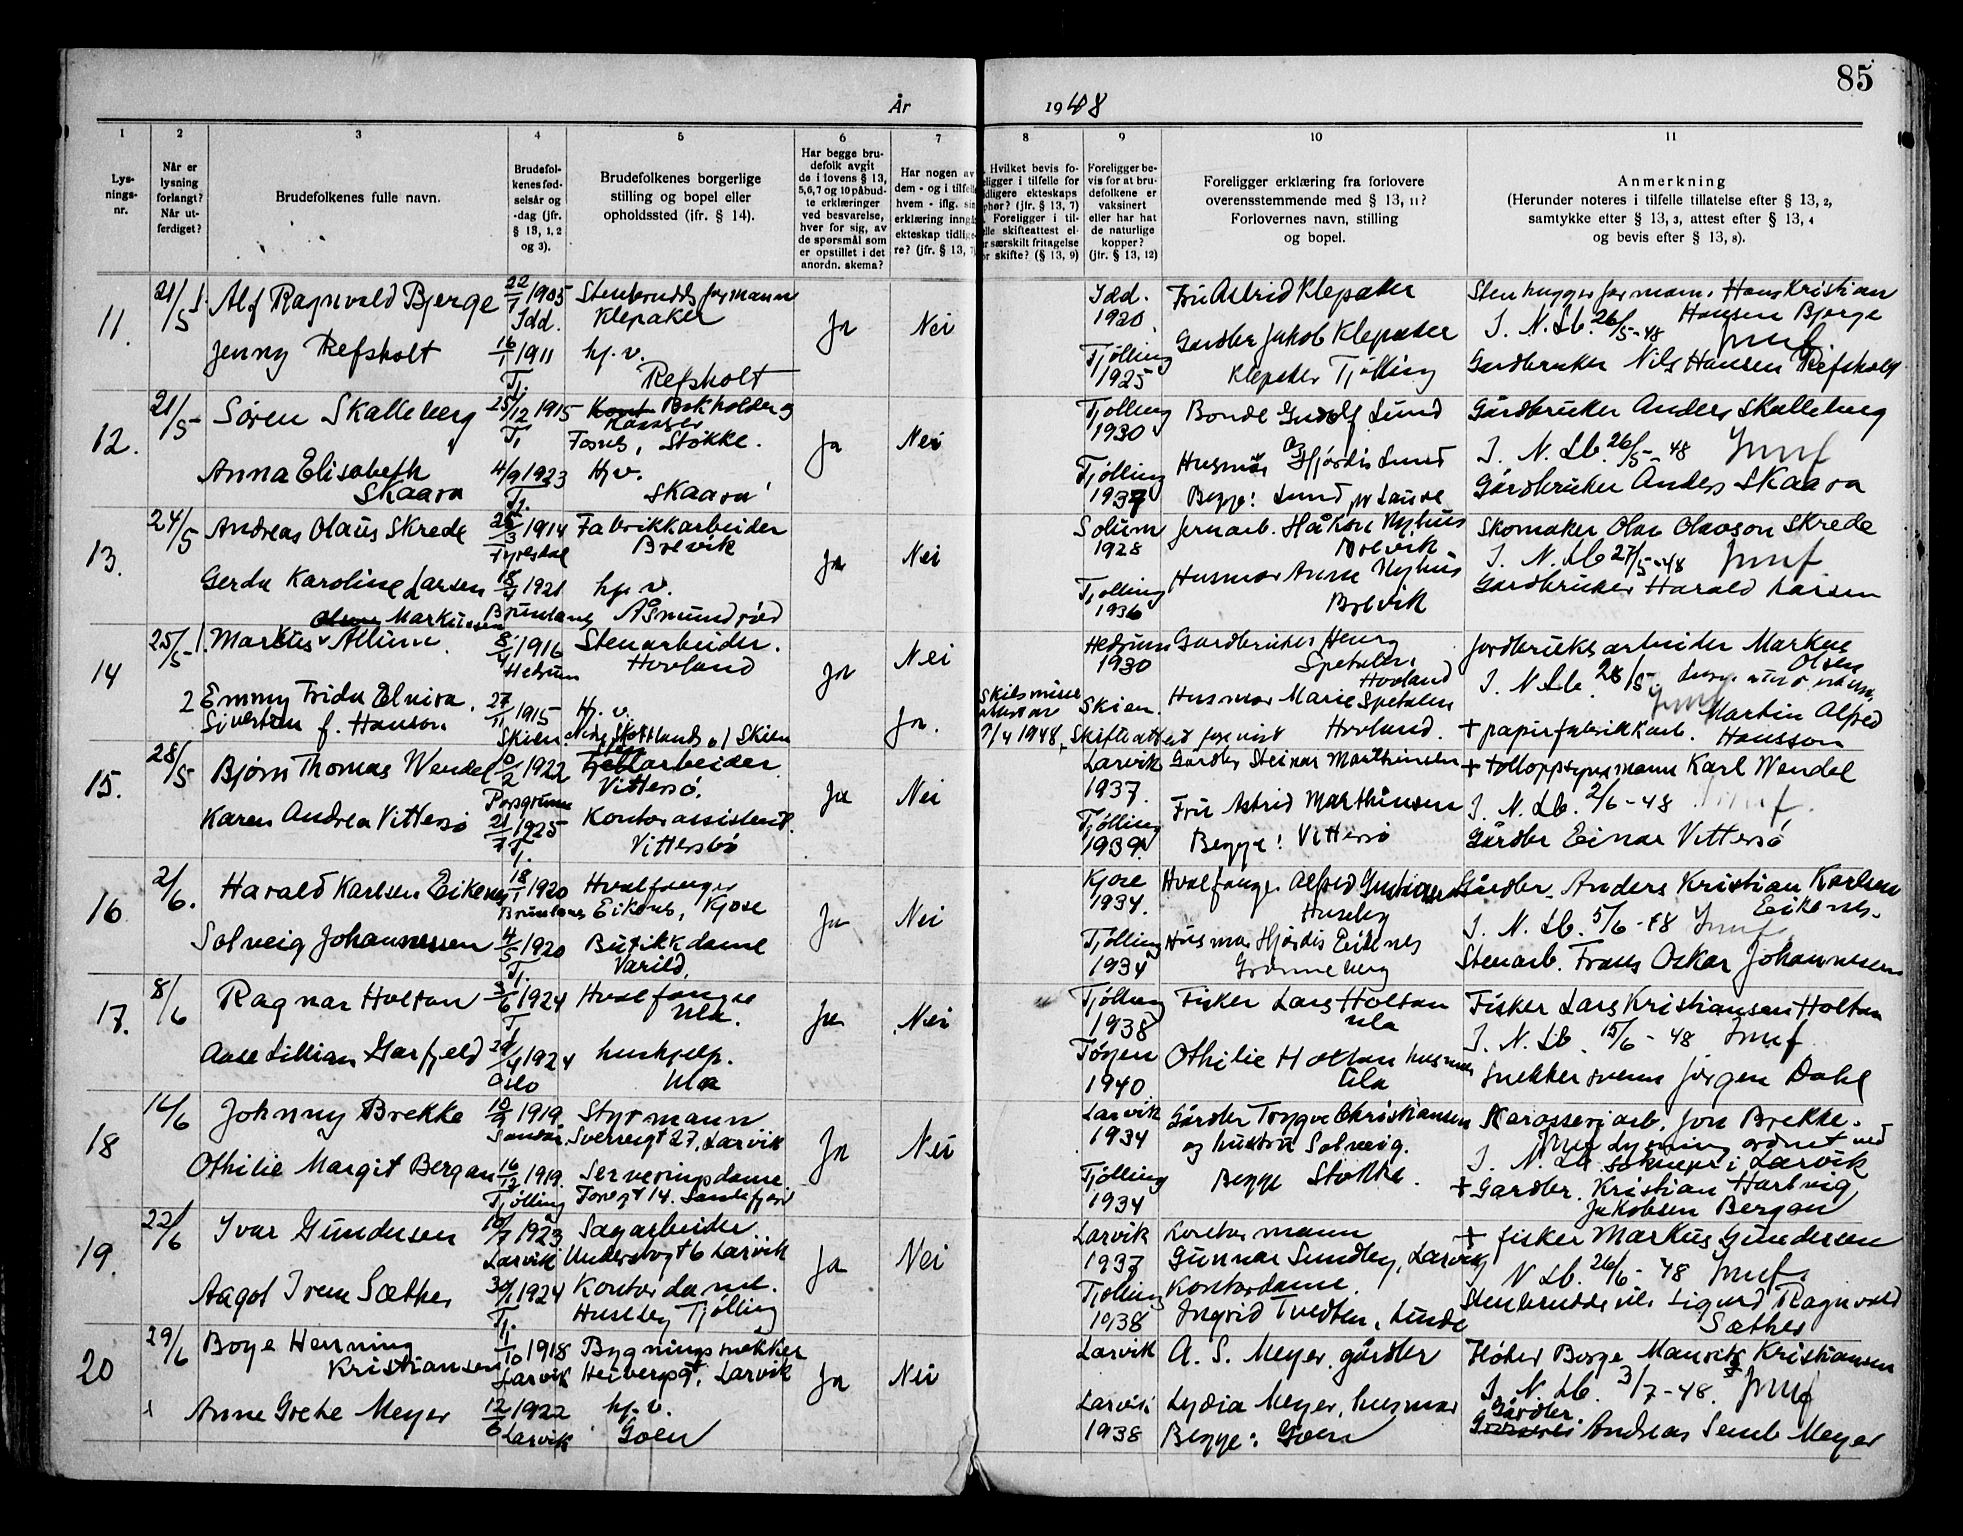 85
År 1948
1 2 3 4 5 6 7 8 9 10 11
Lys-
nings-
nr.
Når er
lysning
forlangt?
Når ut-
ferdiget?
Brudefolkenes fulle navn.
Brudefol-
kenes fød-
selsår og
-dag (jfr.
§ 13, 1, 2
og 3).
Brudefolkenes borgerlige
stilling og bopel eller
opholdssted (ifr. § 14).
Har begge bru-
defolk avgit
de i lovens § 13,
5,6,7 og 10 påbud-
te erklæringer
ved besvarelse,
hver for sig, av
de spørsmål som
er opstillet i det
anordn. skema?
Har nogen av
dem - og i tilfelle
hvem - iflg. sin
erklæring inngåt
ekteskap tidlige-
re? (jfr. § 13, 7)
Hvilket bevis fo-
religger i tilfelle for
tidligere ekteskaps
ophør? (jfr. § 13, 7)
Foreligger i til-
felle skifteattest el-
ler særskilt fritagelse
for skifte? (§ 13, 9)
Foreligger be-
vis for at bru-
defolkene er
vaksinert
eller har hat
de naturlige
kopper?
(jfr. § 13, 12)
Foreligger erklæring fra forlovere
overensstemmende med § 13, 11?
Forlovernes navn, stilling
og bopel.
Anmerkning
(Herunder noteres i tilfelle tillatelse efter § 13, 2,
samtykke efter § 13, 3, attest efter § 13, 4
og bevis efter § 13, 8).
11. 21/5 Alf Ragnvald Bjerge 22/7 1905 Stenbruddsformann Ja Nei Idd. Fru Astrid Klepaker Stenhuggerformann Hans Kristian
Idd. Klepaker 1920 Hansen Bjerge
Gardbr Jakob Klepaker I. N. Lb. 26/5-48
Jenny Refsholt 16/1 1911 hj. v. Tjølling
Tj. Refsholt 1925 Klepaker Tjølling Gardbruker Nils Hansen Refsholt
12. 21/5 Søren Skalleberg 25/12 1915 Bokholder og Ja Nei Tjølling Bonde Gudolf Lund Gårdbruker Anders Skalleberg
Tj. kasserer 1930
Fosnes, Stokke. I. N. Lb. 26/5-48
Anna Elisabeth 4/9 1923 Hj v. Tjølling Husmor Hjørdis Lund
Skaara Tj. Skaara 1937 Begge: Lund pr Lauve Gårdbruker Anders Skaara
13. 24/5 Andreas Olaus Skrede 1914 Fabrikkarbeider Ja Nei Solum Jernarb. Håkon Nyhus Skomaker Olav Olavson Skrede
Fyresdal Brevik 1928 Brevik I. N. Lb 27/5-48
Gerda Karoline Larsen 1921 hj. v. Tjølling Husmor Anna Nyhus Gardbruker Harald Larsen
Brunlanes Åsmundrød 1936 Brevik
14 25/5 Markus Allum Markussen 8/4 1916 Stenarbeider. Ja Nei Hedrum Gardbruker Henry Jordbruksarbeider Markus
Hedrum Hovland 1930 Spetalen Olsen
Hovland I. N Lb. 28/5
2 Emmy Frida Elvira 27/11 1915 Hj. v. Ja. Skien Husmor Marie Spetalen Martin Alfred
Sivertsen f. Hanson Skien 7/4 1948 Hovland. + papirfabrikkarb. Hansson
15. 28/5 Bjørn Thomas Wendel 1922 arbeider Ja Nei Larvik Gardbr Steinar Marthinsen + tolloppsynsmann Karl Wendel
Porsgrunn Vittersø. 1937. I. N. Lb. 2/6-48
Karen Andrea Vittersø 21/7 1925 Kontorassistent. Tjølling Fru Astrid Marthinsen
Tj. Vittersø 1939 Begge: Vittersø Gårdbr Einar Vittersø
16 2/6. Harald Karlsen Eikenes 18/1 1920 Hvalfanger Ja Nei Kjose Hvalfanger Alfred Gårdbr. Anders Kristian Karlsen
Brunlanes Eikenes, Kjose 1934. Huseby Eikenes.
I. N. Lb. 5/6-48
Solveig Johannessen 4/5 1920 Butikkdame Tjølling Husmor Hjørdis Eikenes
Tj. Varild 1934 Grønneberg Stenarb. Frans Oskar Johannessen
17. 8/6 Ragnar Holtan 3/6 1924 Hvalfanger Ja Nei Tjølling Fisker Lars Holtan Fisker Lars Kristiansen Holtan
Tj. Ula. 1938 Ula I. N. Lb. 15/6-48
Aase Lillian Garfjeld 1924 hushjelp. Tøyen Othilie Holtan husmor
Oslo Ula 1940 Ula Snekkersvenn Jørgen Dahl
18 14/6 Johnny Brekke 1919. Styrmann Ja Nei Larvik Gårdbr Trygve Christiansen Karosseriarb. Jon Brekke.
Sverresgt 27, Larvik 1934 og hustru Solveig. Lysning ordnet ved
I. N. Lb. sokneprest i Larvik
Othilie Margit Bergan 16/12 1919. Serveringsdame Tjølling Begge Stokke. + Gardbr. Kristian Hartvig
Tjølling Torvgt 14. Sandefjord 1934 Jakobsen Bergan
19. 22/6 Ivar Gundersen 1923 Sagarbeider Ja Nei Larvik Kontormann + fisker Markus Gundersen
Larvik Undersbogt 6 Larvik 1937 Gunnar Sundby, Larvik N Lb. 26/6-48
Aagot Irene Sæther 30/1 1924 Kontordame. Tjølling Kontordame. Sigurd Ragnvald
Tj. Huseby Tjølling 1938 Ingrid Tvedten, Lunde Sæther
20 29/6 Boye Henning 1/10 1918 Bygningssnekker Ja Nei Larvik A. S. Meyer, gårdbr Borge Mauritz Kristiansen
Kristiansen Larvik Heibergsgt, Larvik I. N. Lb. 3/7-48.
Anne Grethe Meyer 12/6 1922 hj. v. Larvik Lydia Meyer, husmor Gårdbr.
Larvik Goen 1938 Begge: Goen Andreas Semb Meyer